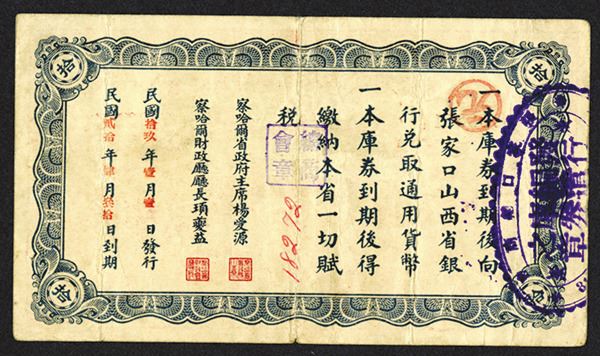 拾
拾
一本庫券到期後向
張家口山西省銀
行兌取通用貨幣
一本庫券到期後得
繳納本省一切賦
税
察哈爾省政府主席楊愛源
察哈爾財政廳廳長項薌益
民國拾玖年壹月壹日發行
民國貳拾年肆月叁拾日到期
18272
會章
拾
拾